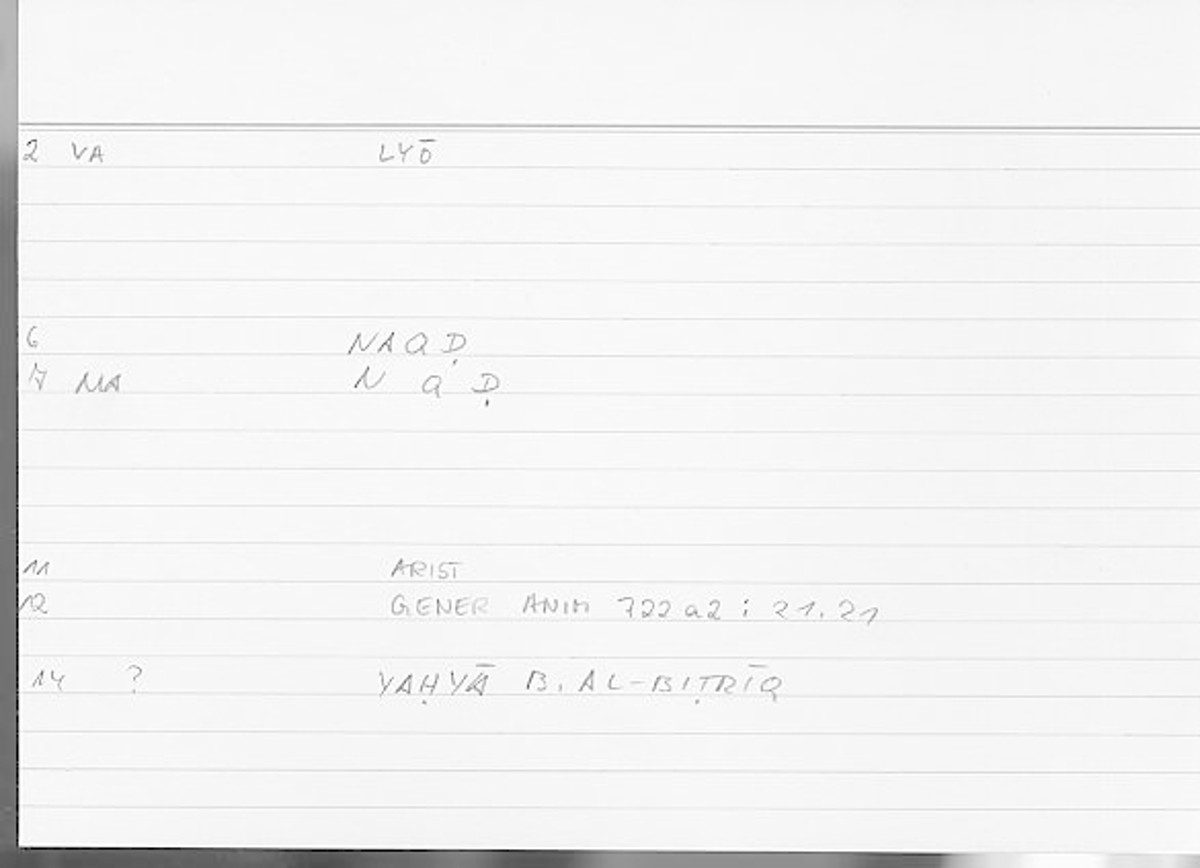 2 VA LYŌ
6 NAQḌ
7 MA N Q Ḍ
11 ARIST
12 GENER ANIM 722a2 ; 21.21
14 ? YAḤYĀ B. AL-BIṬRĪQ